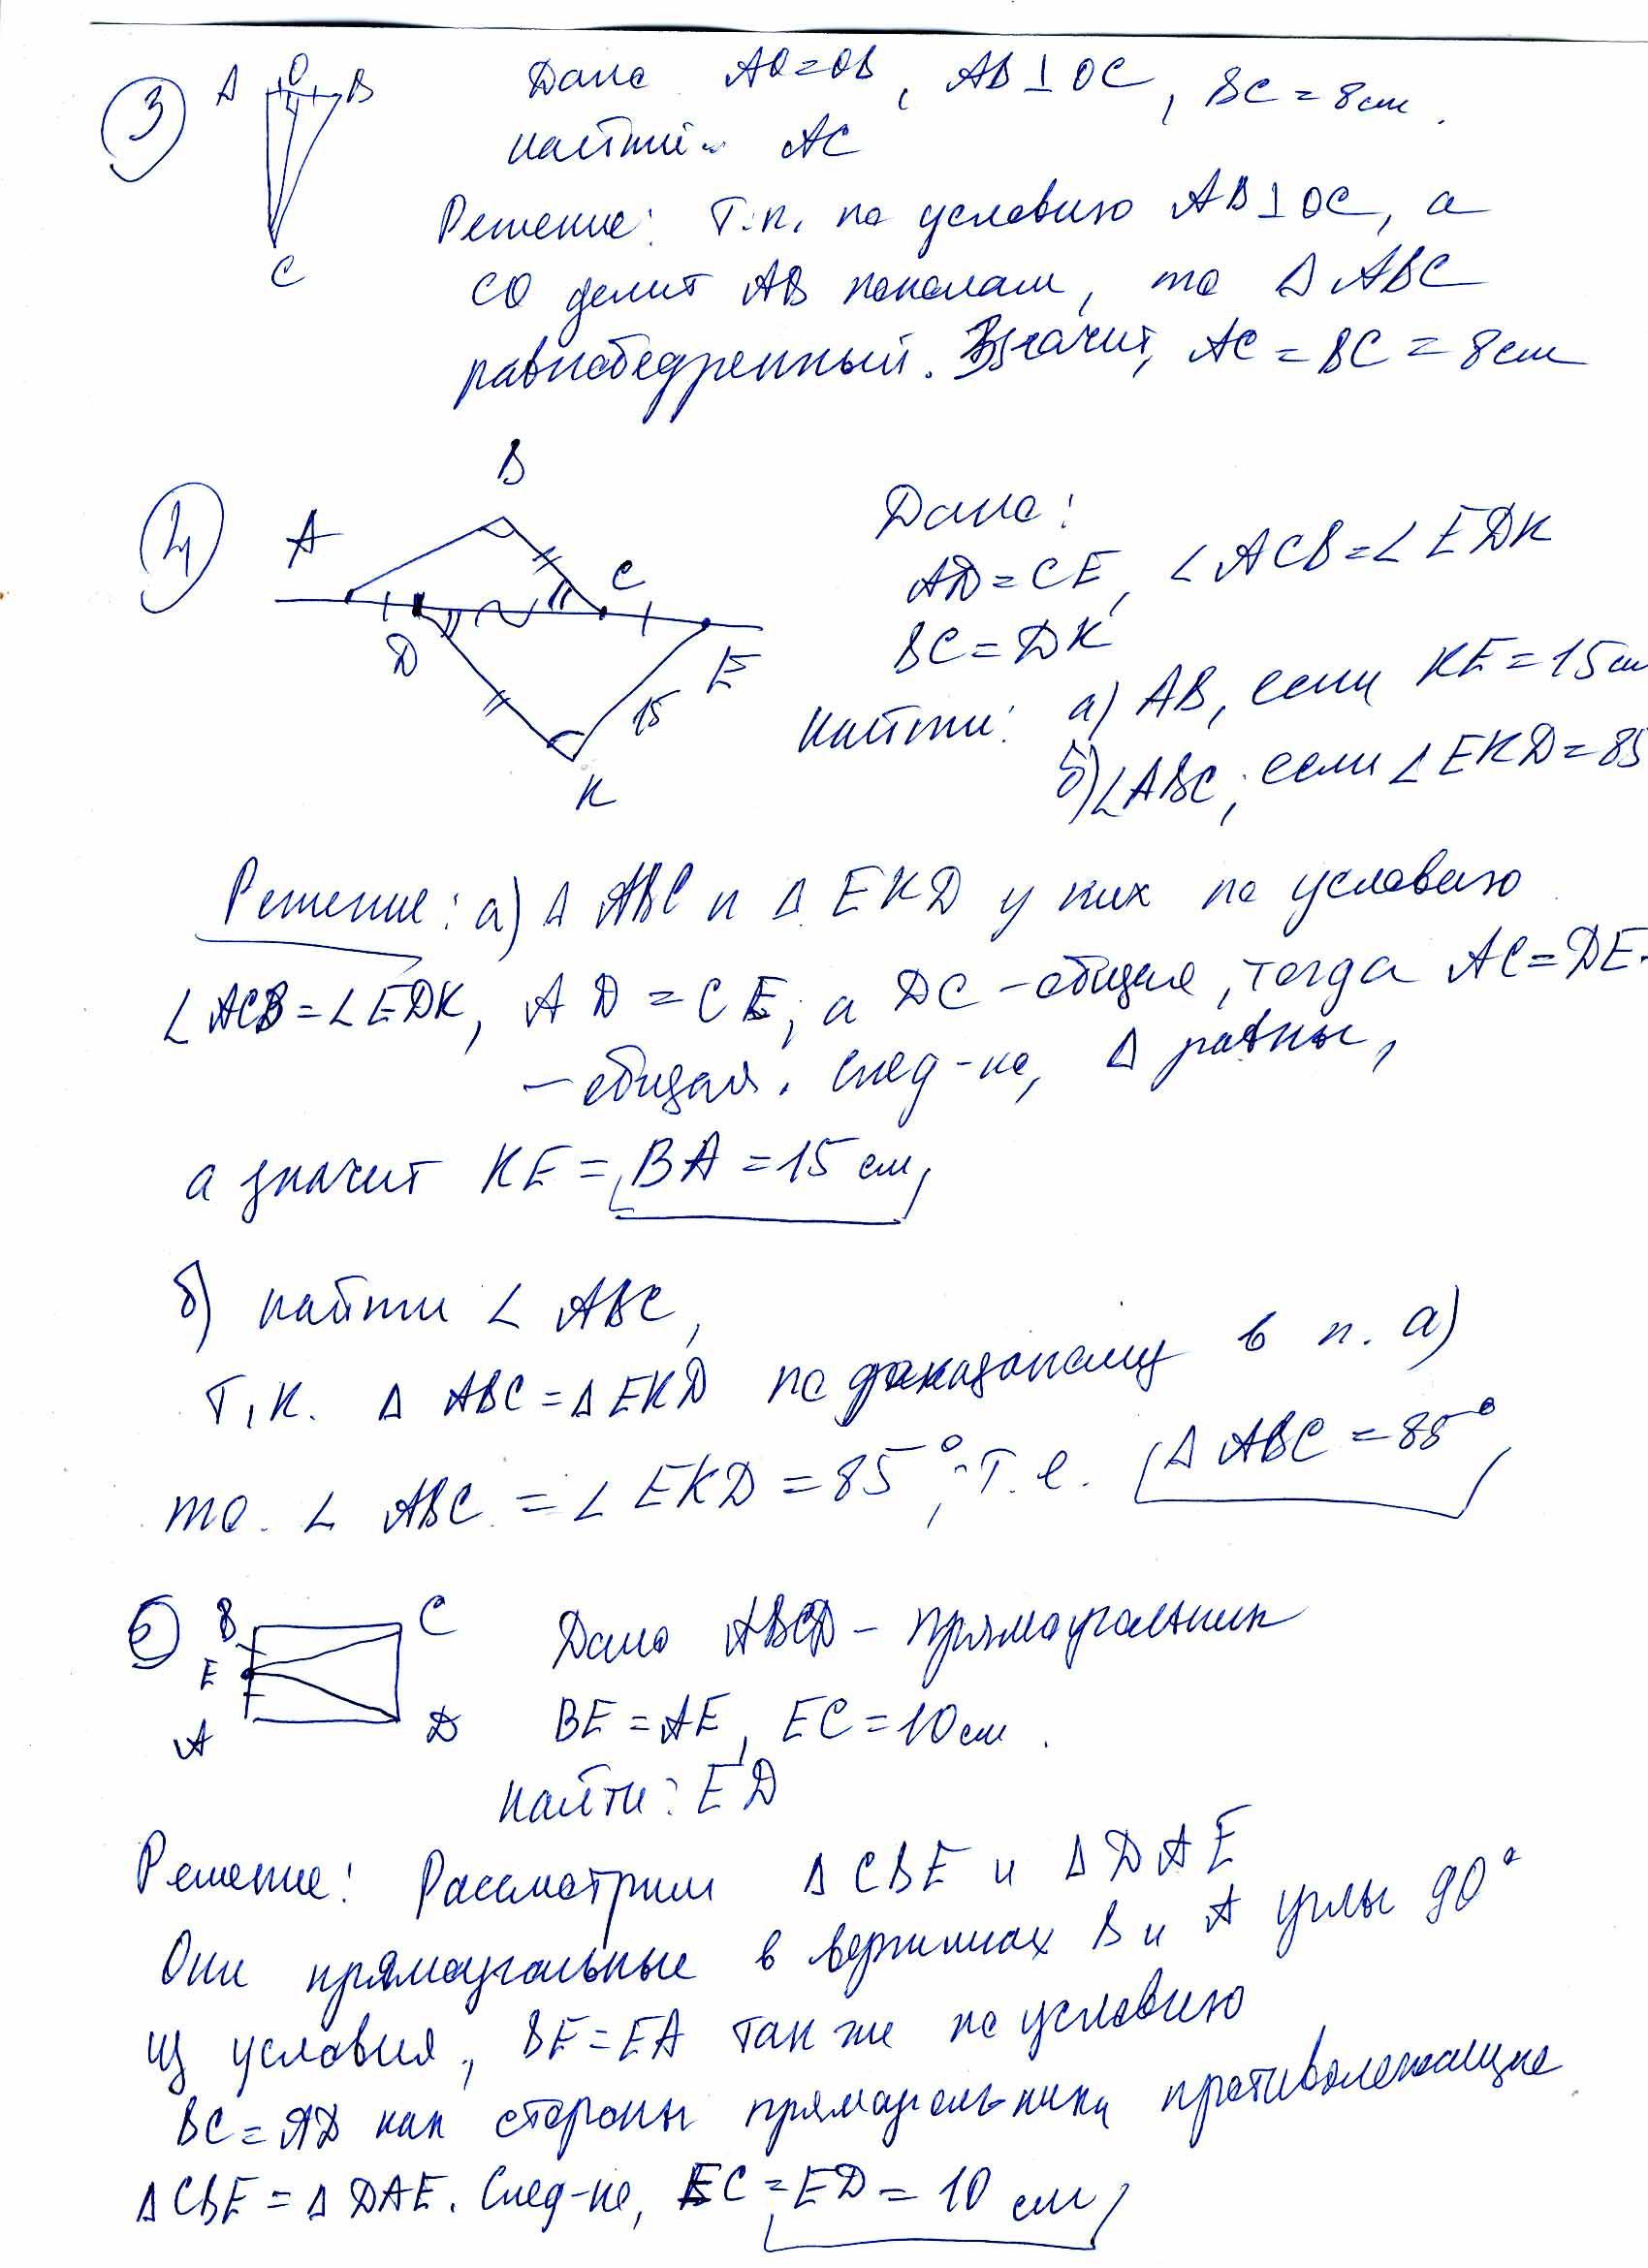 3 A O B Дано AO=OB, AB⊥OC, BC = 8 см.
найти AC
Решение: Т.к. по условию AB⊥OC, а
C
CO делит AB пополам, то Δ ABC
равнобедренный. Значит, AC = BC = 8 см
4 A B C D E K 15
Дано:
AD=CE, ∠ACB=∠EDK
BC=DK
Найти: а) AB, если KE=15 см
б) ∠ABC, если ∠EKD=85
Решение: а) Δ ABC и Δ EKD у них по условию
∠ACB=∠EDK, AD=CE, а DC – общая, тогда AC=DE-
– общая. След-но, Δ равны,
а значит KE = BA = 15 см
б) найти ∠ ABC,
Т.к. Δ ABC = Δ EKD по доказанному в п. а)
то ∠ ABC = ∠ EKD = 85°, т.е. Δ ABC = 85°
6 B C E A D
Дано ABCD – прямоугольник
BE = AE, EC = 10 см.
Найти: ED
Решение: Рассмотрим Δ CBE и Δ DAE
Они прямоугольные в вершинах B и A углы 90°
из условия, BE=EA так же по условию
BC=AD как стороны прямоугольника противолежащие
Δ CBE = Δ DAE. След-но, EC = ED = 10 см